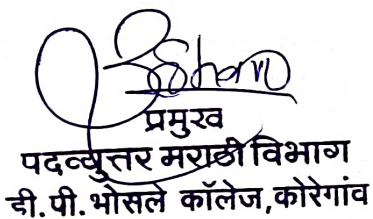 प्रमुख
पदव्युत्तर मराठी विभाग
डी. पी. भोसले कॉलेज, कोरेगांव